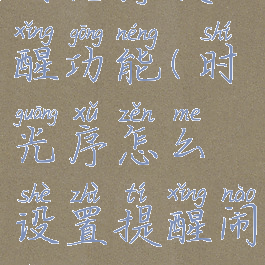 xǐng gōng néng shí
醒功能(时
guāng xù zěn me
光序怎么
shè zhì tí xǐng nào
设置提醒闹